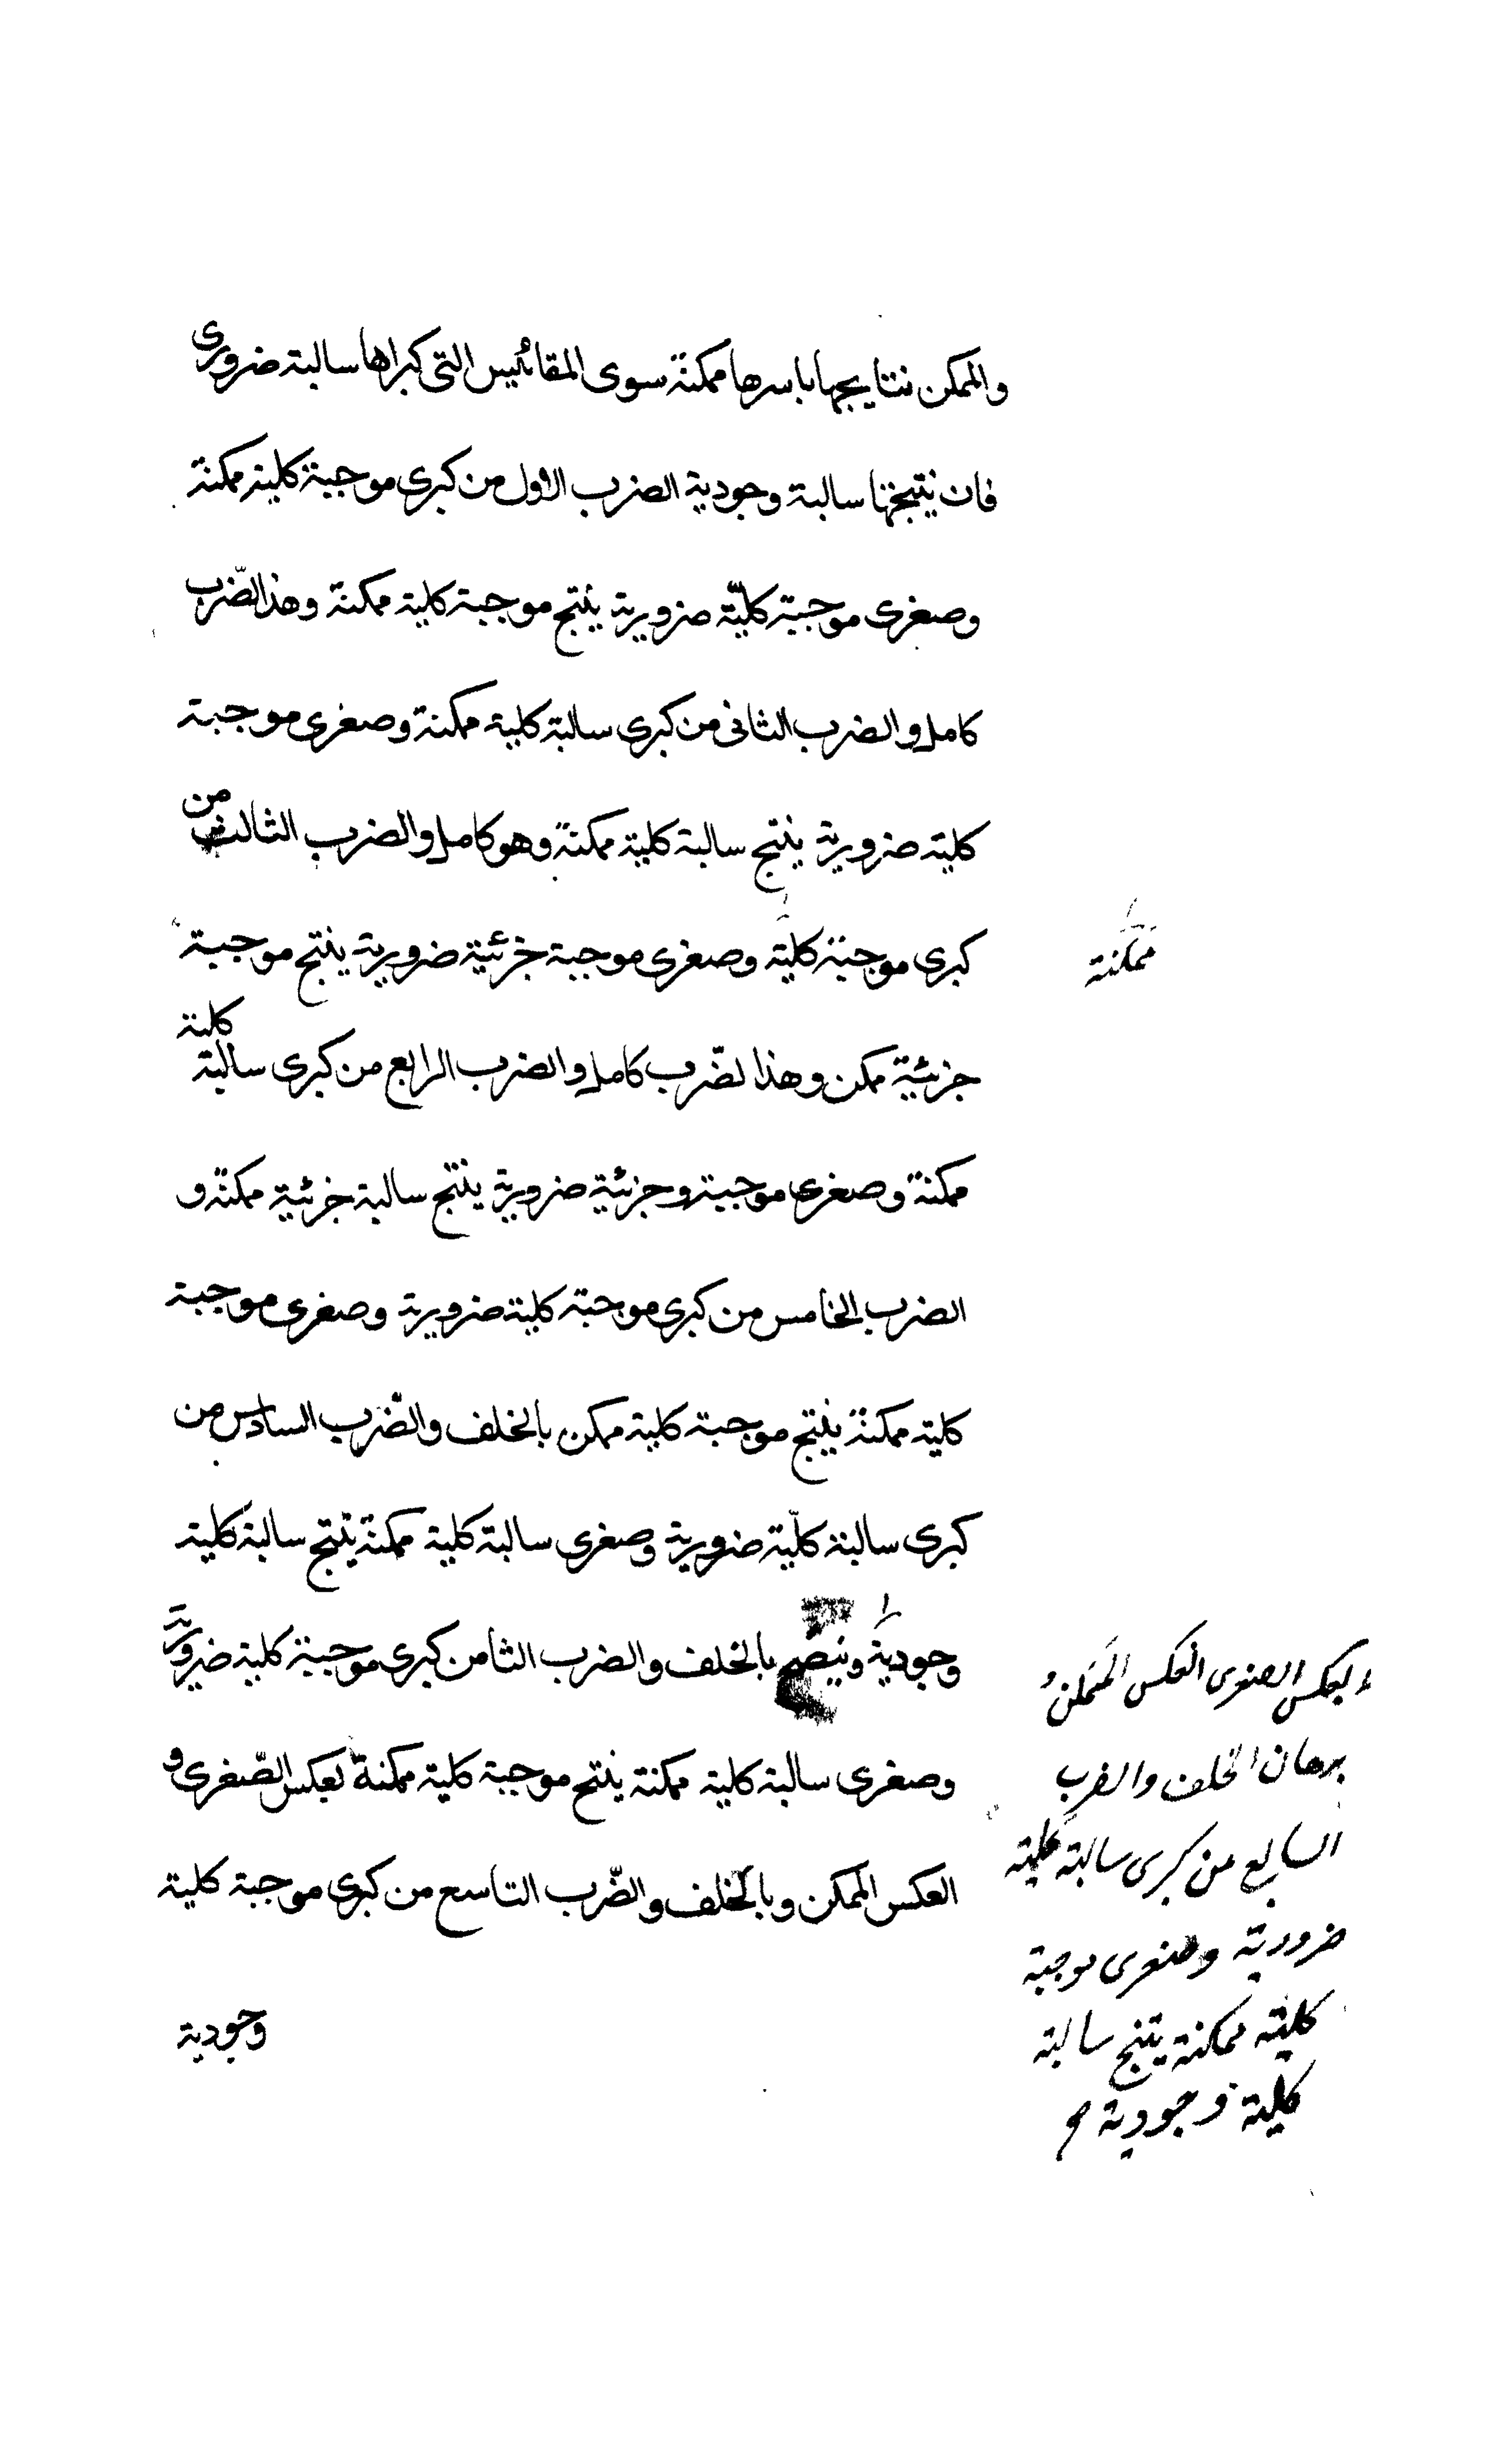 والممكن نتايجها باسرها ممكنة سوى المقائيس التى كبراها سالبة ضرورى
فان نتيجتها سالبة وجودية الضرب الاول من كبرى موجبة كلية ممكنة
وصغرى موجبة كليّة ضرورية ينتج موجبة كلية ممكنة وهذا الضّرب
كامل والضرب الثانى من كبرى سالبة كلية ممكنة وصغرى موجبة
كلية ضرورية ينتج سالبة كلية ممكنة وهو كامل والضرب الثالث من
كبرى موجبة كلية وصغرى موجبة جزئية ضرورية ينتج موجبة
ممكنة
جزئية ممكن وهذا لضّرب كامل والضرب الرابع من كبرى سالبة كلية
ممكنة وصغرى موجبة وجزئية ضرورية ينتج سالبة جزئية ممكنة و
الضرب الخامس من كبرى موجبة كلية ضرورية وصغرى موجبة
كلية ممكنة ينتج موجبة كلية ممكن بالخلف والضّرب السادس من
كبرى سالبة كلّية ضرورية وصغرى سالبة كلية ممكنة ينتج سالبة كلية
وجودية بالخلف والضرب الثامن كبرى موجبة كلية ضرورية
وصغرى سالبة كلية ممكنة ينتج موجبة كلية ممكنة بعكس الصّغرى و
العكس الممكن وبالخلف والضّرب التاسع من كبرى موجبة كلية
وجودية
بعكس الصغرى العكس الممكن و
برهان الخلف والضرب
السابع من كبرى سالبة كلية
ضرورية وصغرى موجبة
كلية ممكنة ينتج سالبة
كلية وجودية